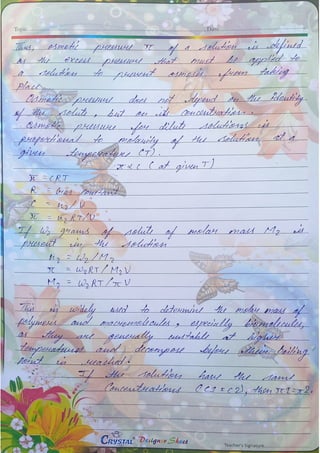 Topic Date
Thus, osmotic pressure π of a solution is defined
as the excess pressure that must be applied to
a solution to prevent osmosis from taking
place.
Osmotic pressure does not depend on the identity
of the solute, but on its concentration.
Osmotic pressure for dilute solutions is
proportional to molarity of the solution at a
given temperature (T).
π ∝ C (at given T)
π = CRT
R = Gas constant
C = n₂ / V
π = n₂RT/V
If W₂ grams of solute of molar mass M₂ is
present in the solution
n₂ = W₂ / M₂
π = W₂RT / M₂V
M₂ = W₂RT / πV
This is widely used to determine the molar mass of
polymers and macromolecules, especially biomolecules,
as they are generally unstable at higher
temperatures and decompose before their boiling
point is reached.
If the solutions have the same
concentrations (C1 = C2), then π1 = π2.
CRYSTAL Designer Sheet
Teacher's Signature